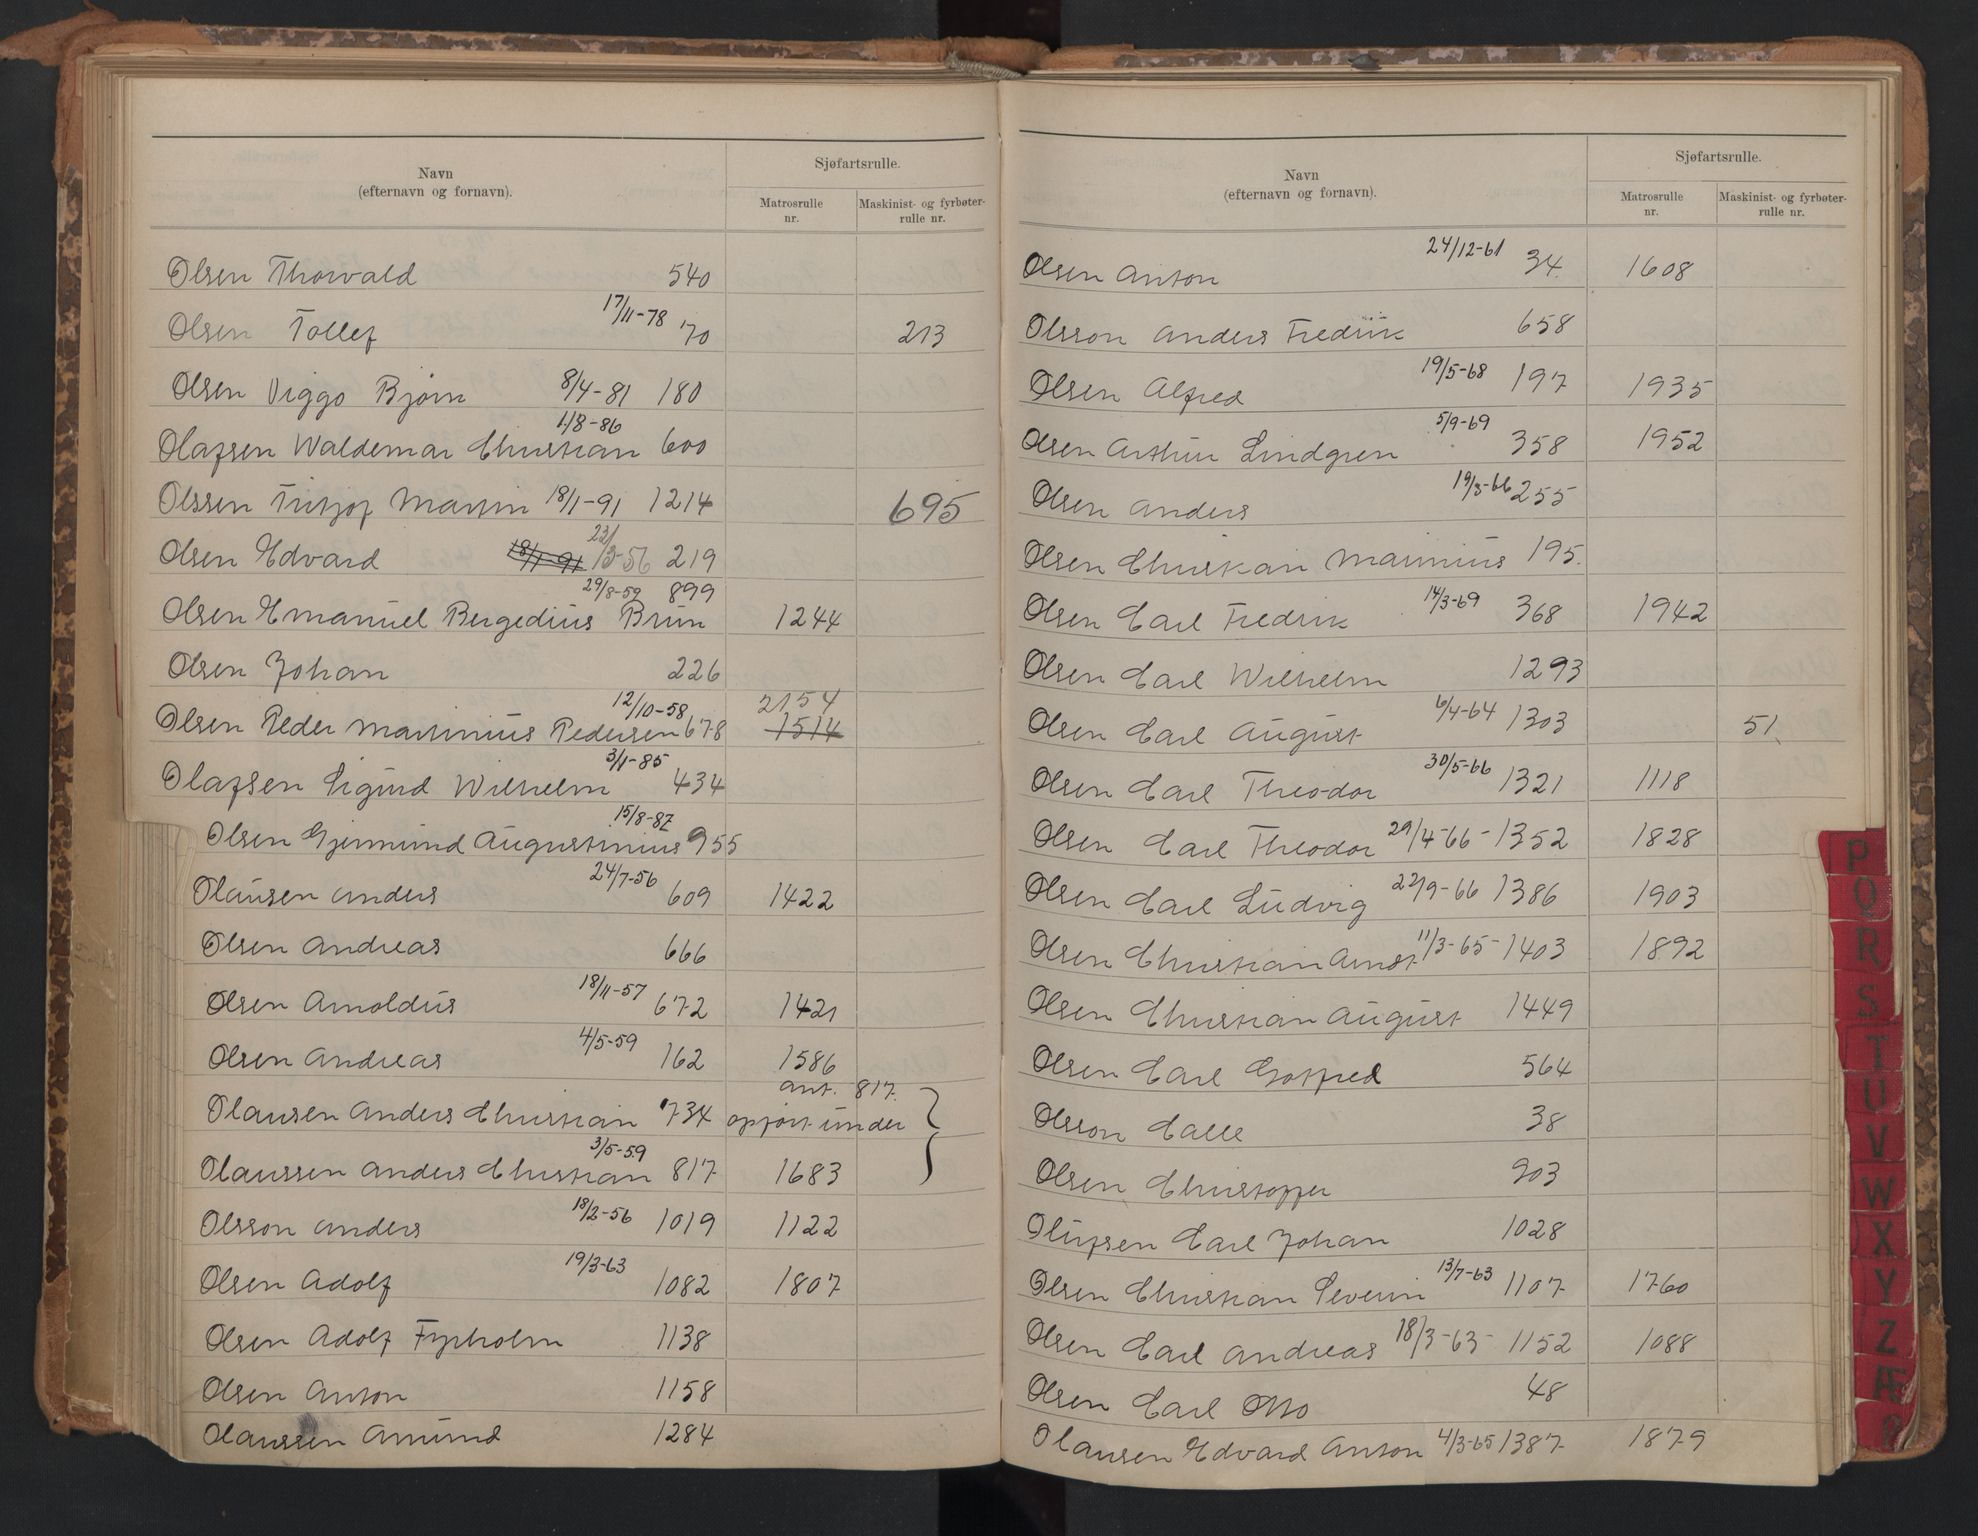 Navn
(efternavn og fornavn).
Sjøfartsrulle.
Matrosrulle
nr.
Maskinist- og fyrbøter-
rulle nr.
Olsen Thorvald 540
Olsen Tollef 17/11-78 70 213
Olsen Viggo Bjørn 8/4-81 180
Olafsen Waldemar Christian 1/8-86 600
Olssen Fritjof Martin 18/1-91 1214 695
Olsen Edvard 18/1-91 23/3-56 219
Olsen Emanuel Bergedius Brun 29/8-59 899 1244
Olsen Johan 226
Olsen Peder Martinius Pedersen 12/10-58 678 2154 1514
Olafsen Sigurd Wilhelm 3/1-85 434
Olsen Gjermund Augustinius 15/8-87 955
Olausen Anders 24/7-56 609 1422
Olsen Andreas 666
Olsen Arnoldus 18/11-57 672 1421
Olsen Andreas 4/5-59 162 1586
Olausen Anders Christian 734 opført under ant. 817.
Olaussen Anders Christian 3/5-59 817 1683
Olsson Anders 18/2-56 1019 1122
Olsen Adolf 19/3-63 1082 1807
Olsen Adolf Fyrholm 1138
Olsen Anton 1158
Olaussen Amund 1284
Navn
(efternavn og fornavn).
Sjøfartsrulle.
Matrosrulle
nr.
Maskinist- og fyrbøter-
rulle nr.
Olsen Anton 24/12-61 34. 1608
Olsson Anders Fredrik 658
Olsen Alfred 19/5-68 197 1935
Olsen Arthur Lindgren 5/9-69 358 1952
Olsen Anders 19/3-66 255
Olsen Christian Marinius 195.
Olsen Carl Fredrik 14/3-69 368 1942
Olsen Carl Wilhelm 1293
Olsen Carl August 6/4-64 1303 51
Olsen Carl Theodor 30/5-66 1321 1118
Olsen Carl Theodor 29/4-66 - 1352 1828
Olsen Carl Ludvig 22/9-66 1386 1903
Olsen Christian Arndt 11/3-65 - 1403 1892
Olsen Christian August 1449
Olsen Carl Gotfred 564
Olsson Calle 38
Olsen Christopher 903
Olufsen Carl Johan 1028
Olsen Christian Severin 13/7-63 1107 1760
Olsen Carl Andreas 18/3-63 - 1152 1088
Olsen Carl Otto 48
Olausen Edvard Anton 4/3-65 1387 1879
P
Q
R
S
T
U
V
W
X
Y
Z
Æ